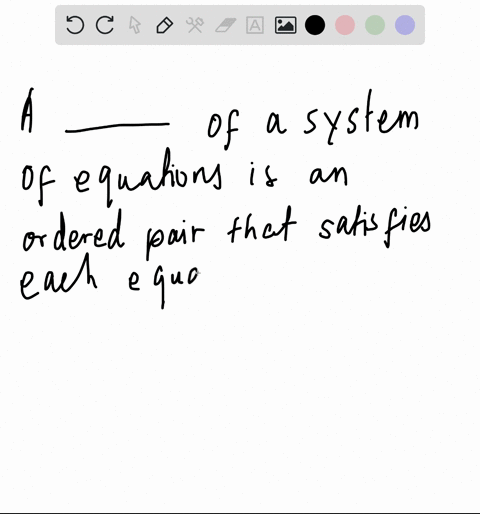 A ____ of a system
of equations is an
ordered pair that satisfies
each equa